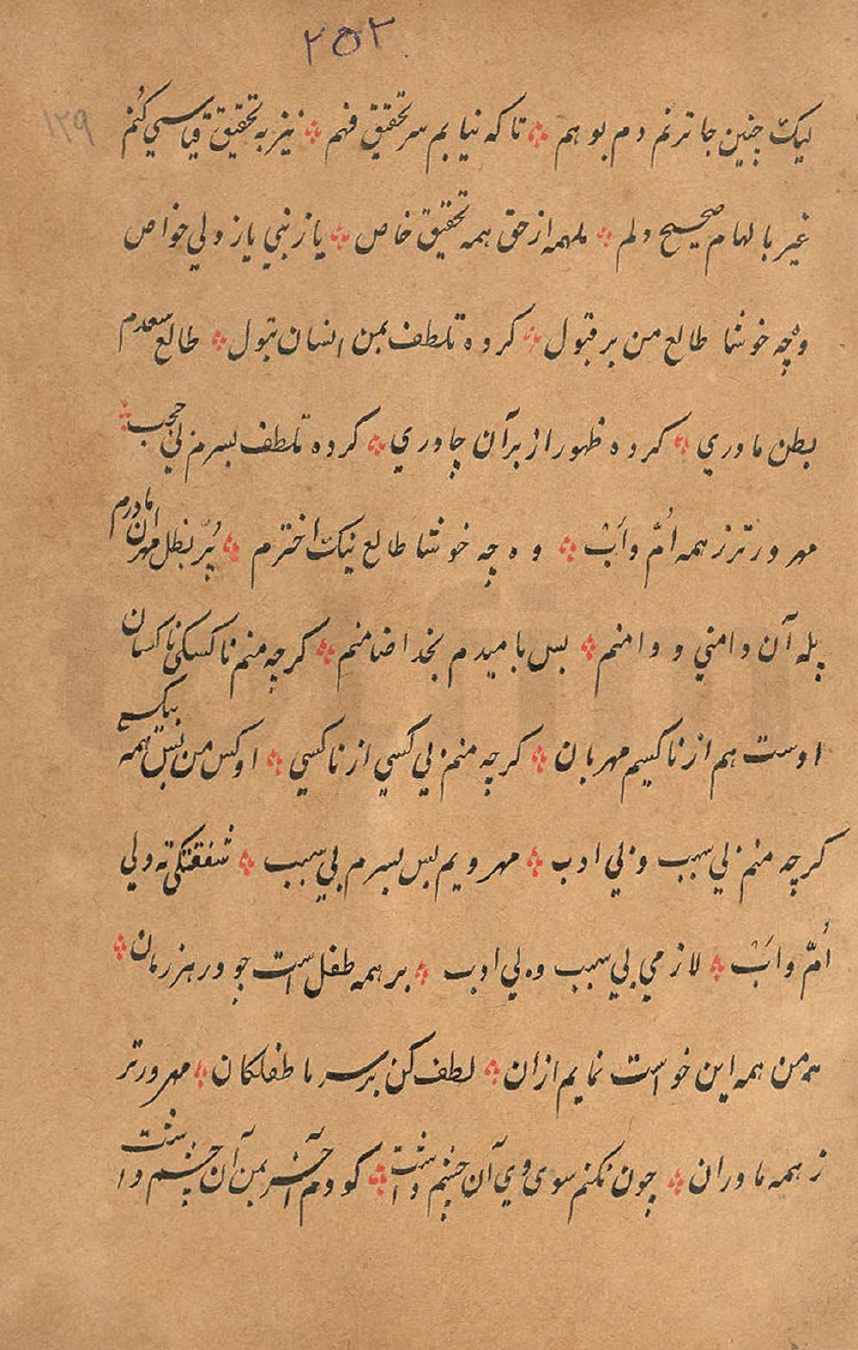 ۲۵۲
۱۲۹
لیک چنین جا نزنم دم بوهم تا که نیابم سر تحقیق فهم نیز به تحقیق قیاسی کنم
غیر بالهام صحیح دلم ملهمه از حق همه تحقیق خاص یا ز نبی یا ز ولی خواص
وه چه خوشا طالع من بر قبول کرده تلطف بمن انسان بتول طالع سعدم
بطن مادری کرده ظهور از بر آن چادری کرده تلطف بسرم بی حجب
مهرورتر ز همه اُمّ و اَبْ وه چه خوشا طالع نیک اخترم پُر بظل مهر آن مادرم
پله آن دامنی و دامنم بس بامیدم بخدا ضامنم کرچه منم ناکسکی ناکسان
اوست هم از ناکسیم مهربان کرچه منم بی کسی از ناکسی او کس من بس همه بیکسی
کرچه منم بی سبب و بی ادب مهرویم بس بسرم بی سبب شفقتکی
اُمّ و اَبْ لازمی بی سبب و بی ادب بر همه طفل است چو در هر زمان
هم من همه این خواست نمایم از ان لطف کن بر سر ما طفلکان مهرورتر
ز همه مادران چون نکنم سوی وی آن چشم داشت کو دم آخر بمن آن چشم داشت